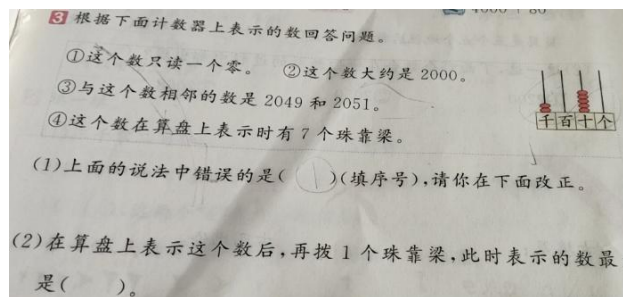 4000 + 80
3 根据下面计数器上表示的数回答问题。
①这个数只读一个零。 ②这个数大约是 2000。
③与这个数相邻的数是 2049 和 2051。
④这个数在算盘上表示时有 7 个珠靠梁。
千 百 十 个
(1)上面的说法中错误的是( ① )(填序号),请你在下面改正。
(2)在算盘上表示这个数后,再拨 1 个珠靠梁,此时表示的数最
是( )。